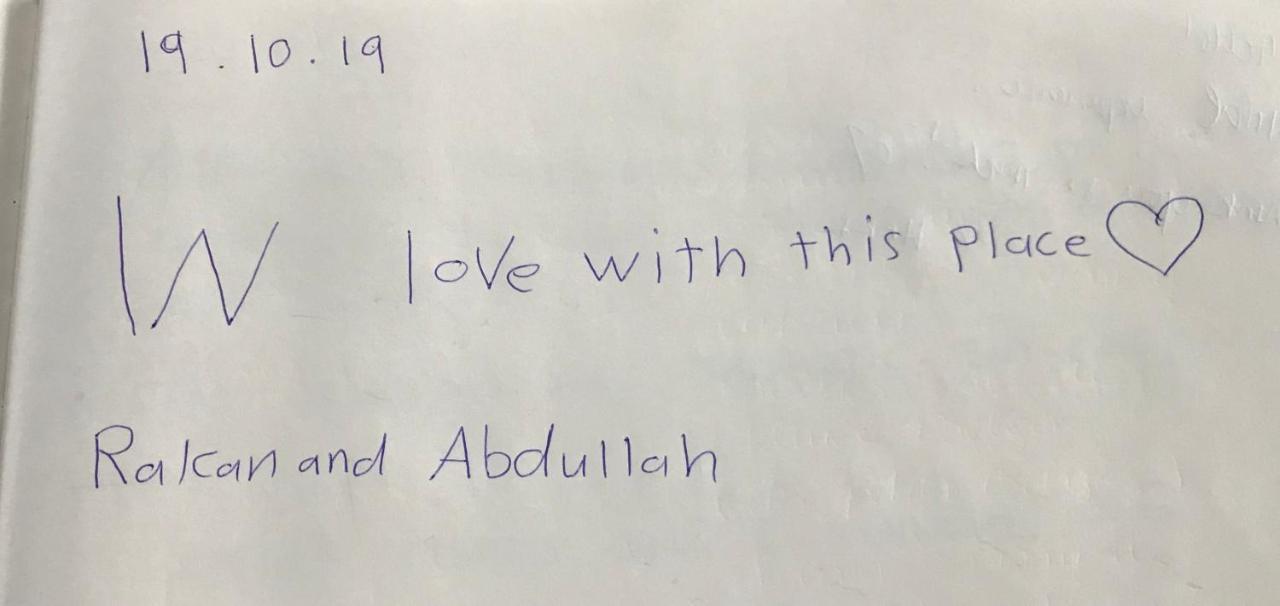 19.10.19
IN love with this place♡
Rakan and Abdullah